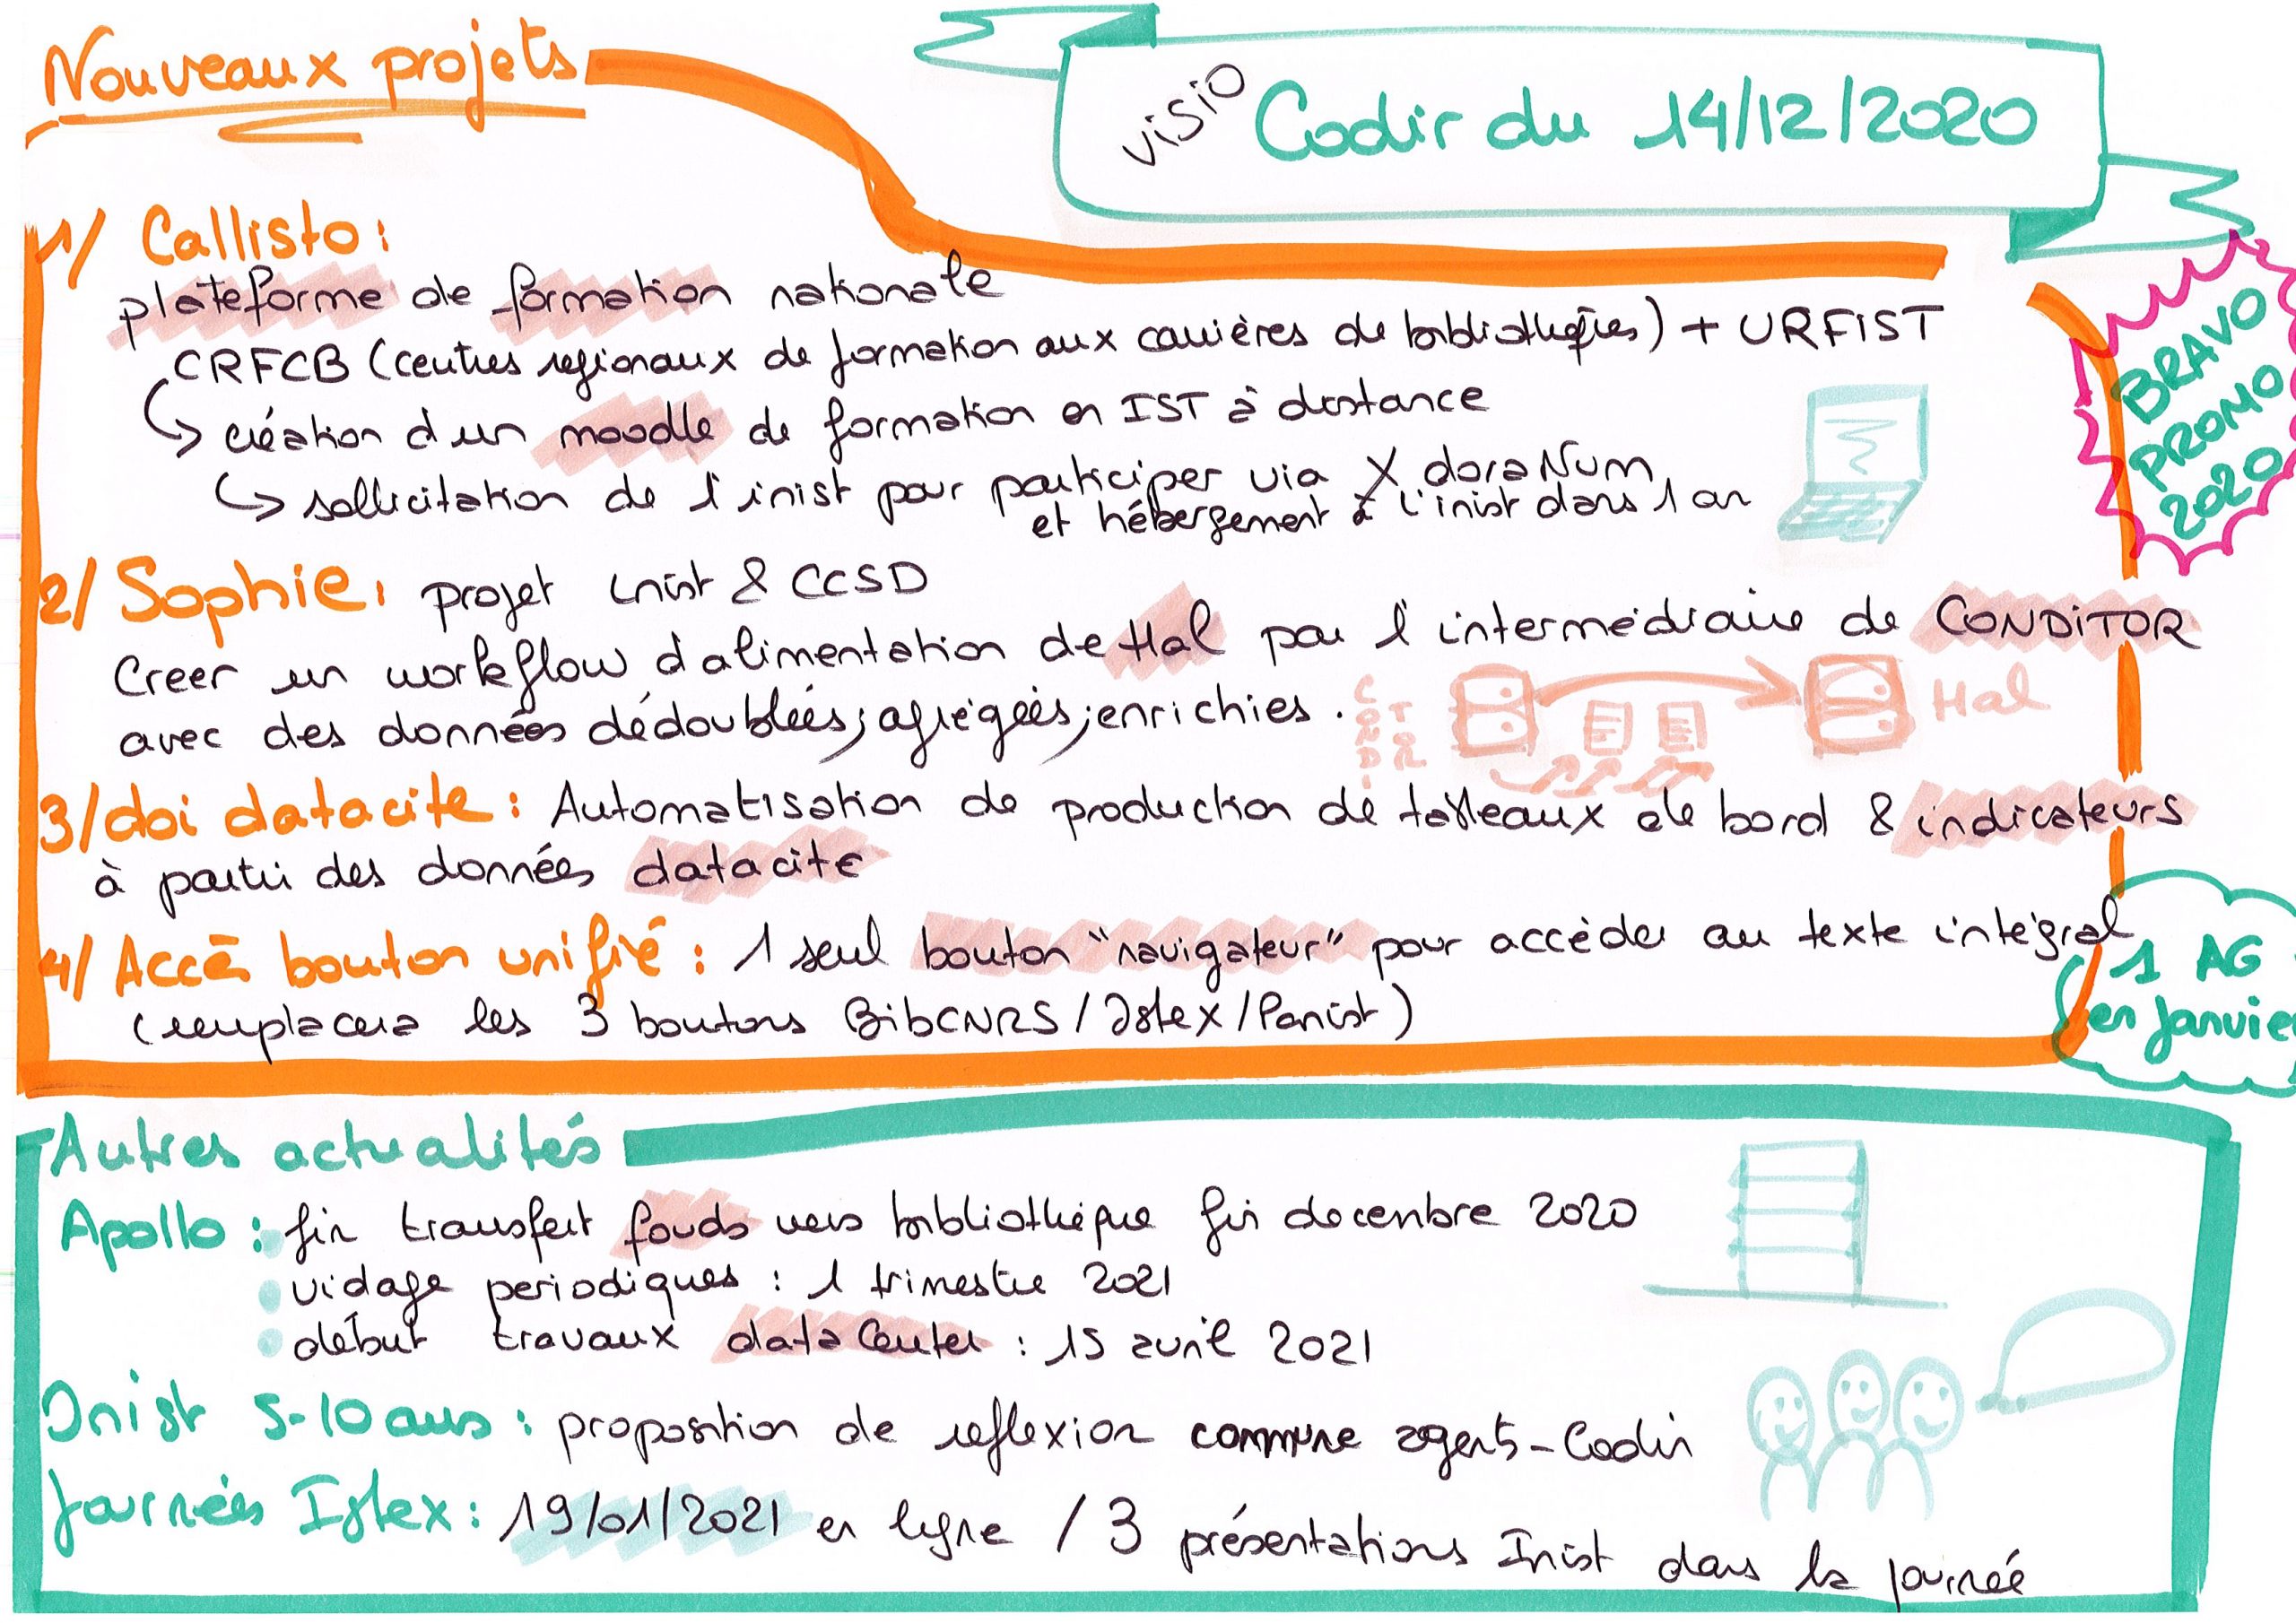 Nouveaux projets
visio Codir du 14/12/2020
BRAVO
PROMO
2020
1/ Callisto :
plateforme de formation nationale
CRFCB (centres regionaux de formation aux carrières de bibliothèques) + URFIST
↳ création d'un moodle de formation en IST à distance
↳ sollicitation de l'inist pour participer via X doraNum
et hébergement à l'inist dans 1 an
2/ Sophie : projet Inist & CCSD
Creer un workflow d'alimentation de Hal par l'intermédiaire de CONDITOR
avec des données dédoublées, agrégées, enrichies.
CONDI
TOR
Hal
3/ doi datacite : Automatisation de production de tableaux de bord & indicateurs
à partir des données datacite
4/ Accè bouton unifié : 1 seul bouton "navigateur" pour accéder au texte intégral
(remplacera les 3 boutons BibCNRS / Istex / Panist)
1 AG
en Janvier
Autres actualités
Apollo : fin transfert fonds vers bibliothèque fin decembre 2020
vidage periodiques : 1 trimestre 2021
début travaux data Center : 15 avril 2021
Inist 5-10 ans : proposition de reflexion commune agents-Codir
Journées Istex : 19/01/2021 en ligne / 3 présentations Inist dans la journée